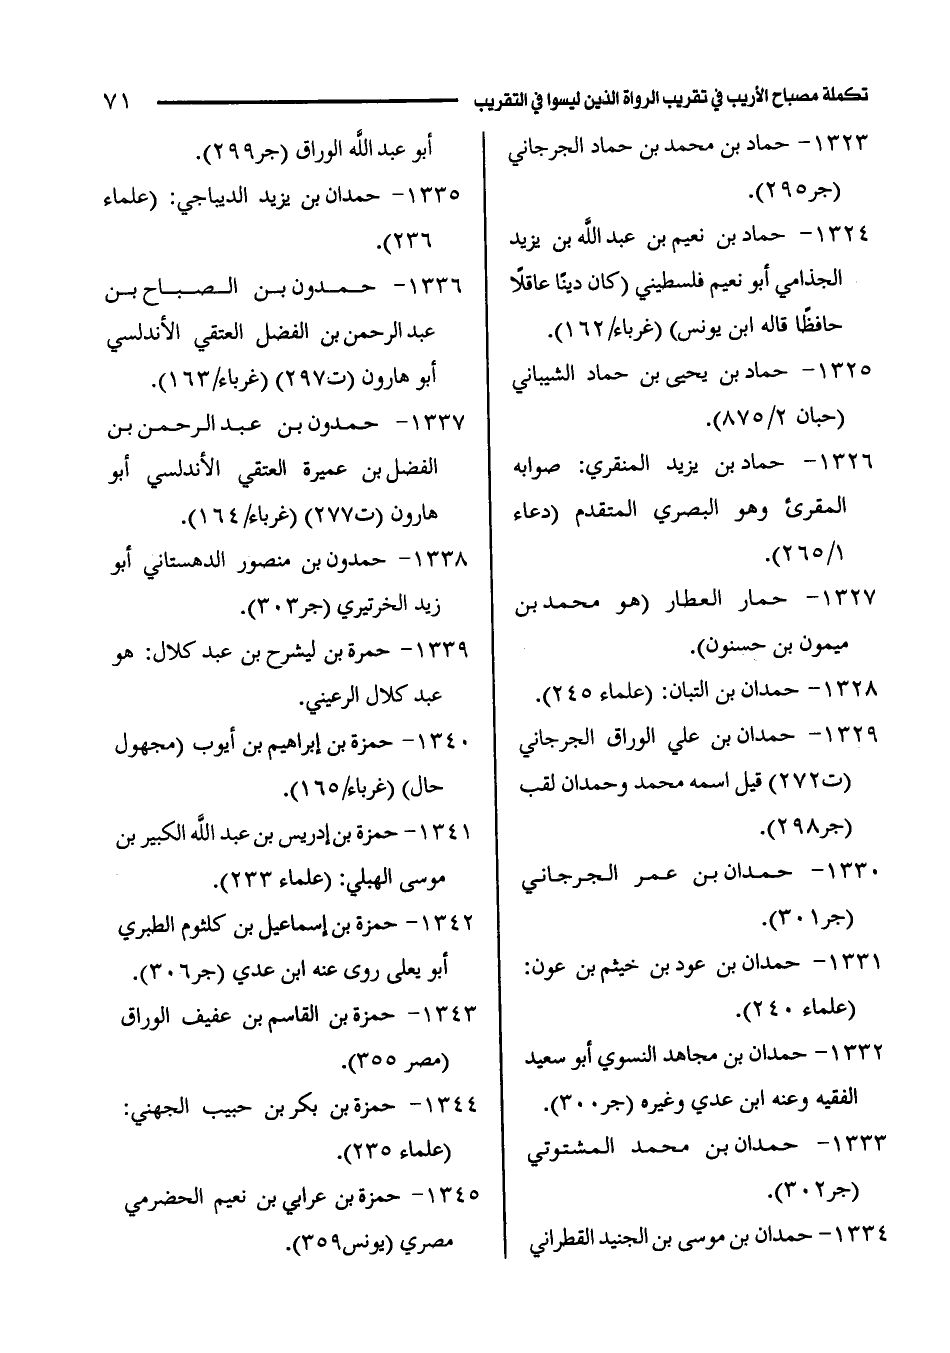 تكملة مصباح الأريب في تقريب الرواة الذين ليسوا في التقريب ٧١
١٣٢٣- حماد بن محمد بن حماد الجرجاني
(جر٢٩٥).
١٣٢٤- حماد بن نعيم بن عبد اللَّه بن يزيد
الجذامي أبو نعيم فلسطيني (كان دينًا عاقلًا
حافظًا قاله ابن يونس) (غرباء/١٦٢).
١٣٢٥- حماد بن يحيى بن حماد الشيباني
(حبان ٨٧٥/٢).
١٣٢٦- حماد بن يزيد المنقري: صوابه
المقرئ وهو البصري المتقدم (دعاء
٢٦٥/١).
١٣٢٧- حمار العطار (هو محمد بن
ميمون بن حسنون).
١٣٢٨- حمدان بن التبان: (علماء ٢٤٥).
١٣٢٩- حمدان بن علي الوراق الجرجاني
(ت٢٧٢) قيل اسمه محمد وحمدان لقب
(جر٢٩٨).
١٣٣٠- حمدان بن عمر الجرجاني
(جر٣٠١).
١٣٣١- حمدان بن عود بن خيثم بن عون:
(علماء ٢٤٠).
١٣٣٢- حمدان بن مجاهد النسوي أبو سعيد
الفقيه وعنه ابن عدي وغيره (جر٣٠٠).
١٣٣٣- حمدان بن محمد المشتوتي
(جر٣٠٢).
١٣٣٤- حمدان بن موسى بن الجنيد القطراني
أبو عبد اللَّه الوراق (جر٢٩٩).
١٣٣٥- حمدان بن يزيد الديباجي: (علماء
٢٣٦).
١٣٣٦- حمدون بن الصباح بن
عبد الرحمن بن الفضل العتقي الأندلسي
أبو هارون (ت٢٩٧) (غرباء/١٦٣).
١٣٣٧- حمدون بن عبد الرحمن بن
الفضل بن عميرة العتقي الأندلسي أبو
هارون (ت٢٧٧) (غرباء/١٦٤).
١٣٣٨- حمدون بن منصور الدهستاني أبو
زيد الخرتيري (جر٣٠٣).
١٣٣٩- حمرة بن ليشرح بن عبد كلال: هو
عبد كلال الرعيني.
١٣٤٠- حمزة بن إبراهيم بن أيوب (مجهول
حال) (غرباء/١٦٥).
١٣٤١- حمزة بن إدريس بن عبد اللَّه الكبير بن
موسى الهبلي: (علماء ٢٣٣).
١٣٤٢- حمزة بن إسماعيل بن كلثوم الطبري
أبو يعلى روى عنه ابن عدي (جر٣٠٦).
١٣٤٣- حمزة بن القاسم بن عفيف الوراق
(مصر ٣٥٥).
١٣٤٤- حمزة بن بكر بن حبيب الجهني:
(علماء ٢٣٥).
١٣٤٥- حمزة بن عرابي بن نعيم الحضرمي
مصري (يونس٣٥٩).